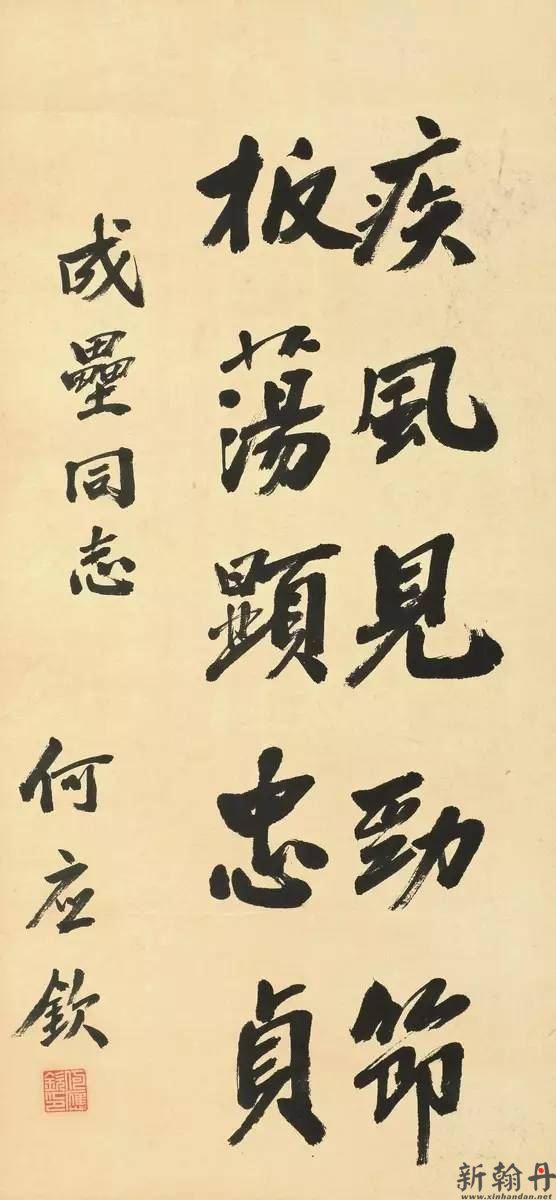 疾風見勁節
板蕩顯忠貞
成壘同志
何应欽
新翰丹
www.xinhandan.net